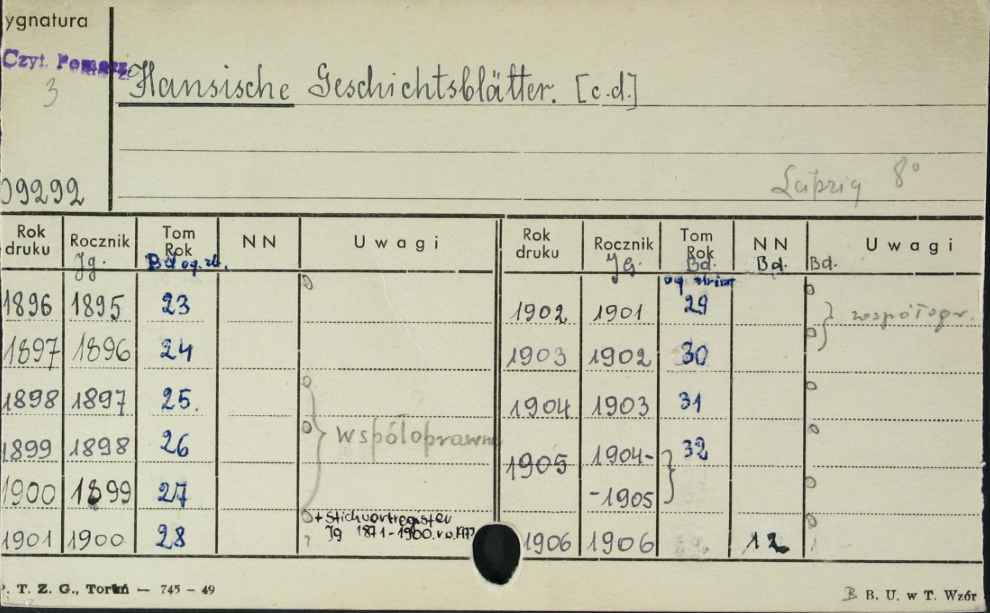 ygnatura
Czyt. Pomorz.
3
Hansische Geschichtsblätter. [c.d.]
09292
Leipzig 8°
Rok druku Rocznik Tom Rok NN Uwagi Rok druku Rocznik Tom Rok NN Uwagi
Jg. Bd og. zb. Jg. Bd. Bd. Bd.
1896 1895 23 1902 1901 29 współopr.
1897 1896 24 1903 1902 30
1898 1897 25. 1904 1903 31
1899 1898 26 współoprawne 1905 1904- 32
1900 1899 27 -1905
1901 1900 28 + Stichwortregister Jg 1871-1900 1906 1906 12
P. T. Z. G., Toruń — 745 — 49
B B. U. w T. Wzór